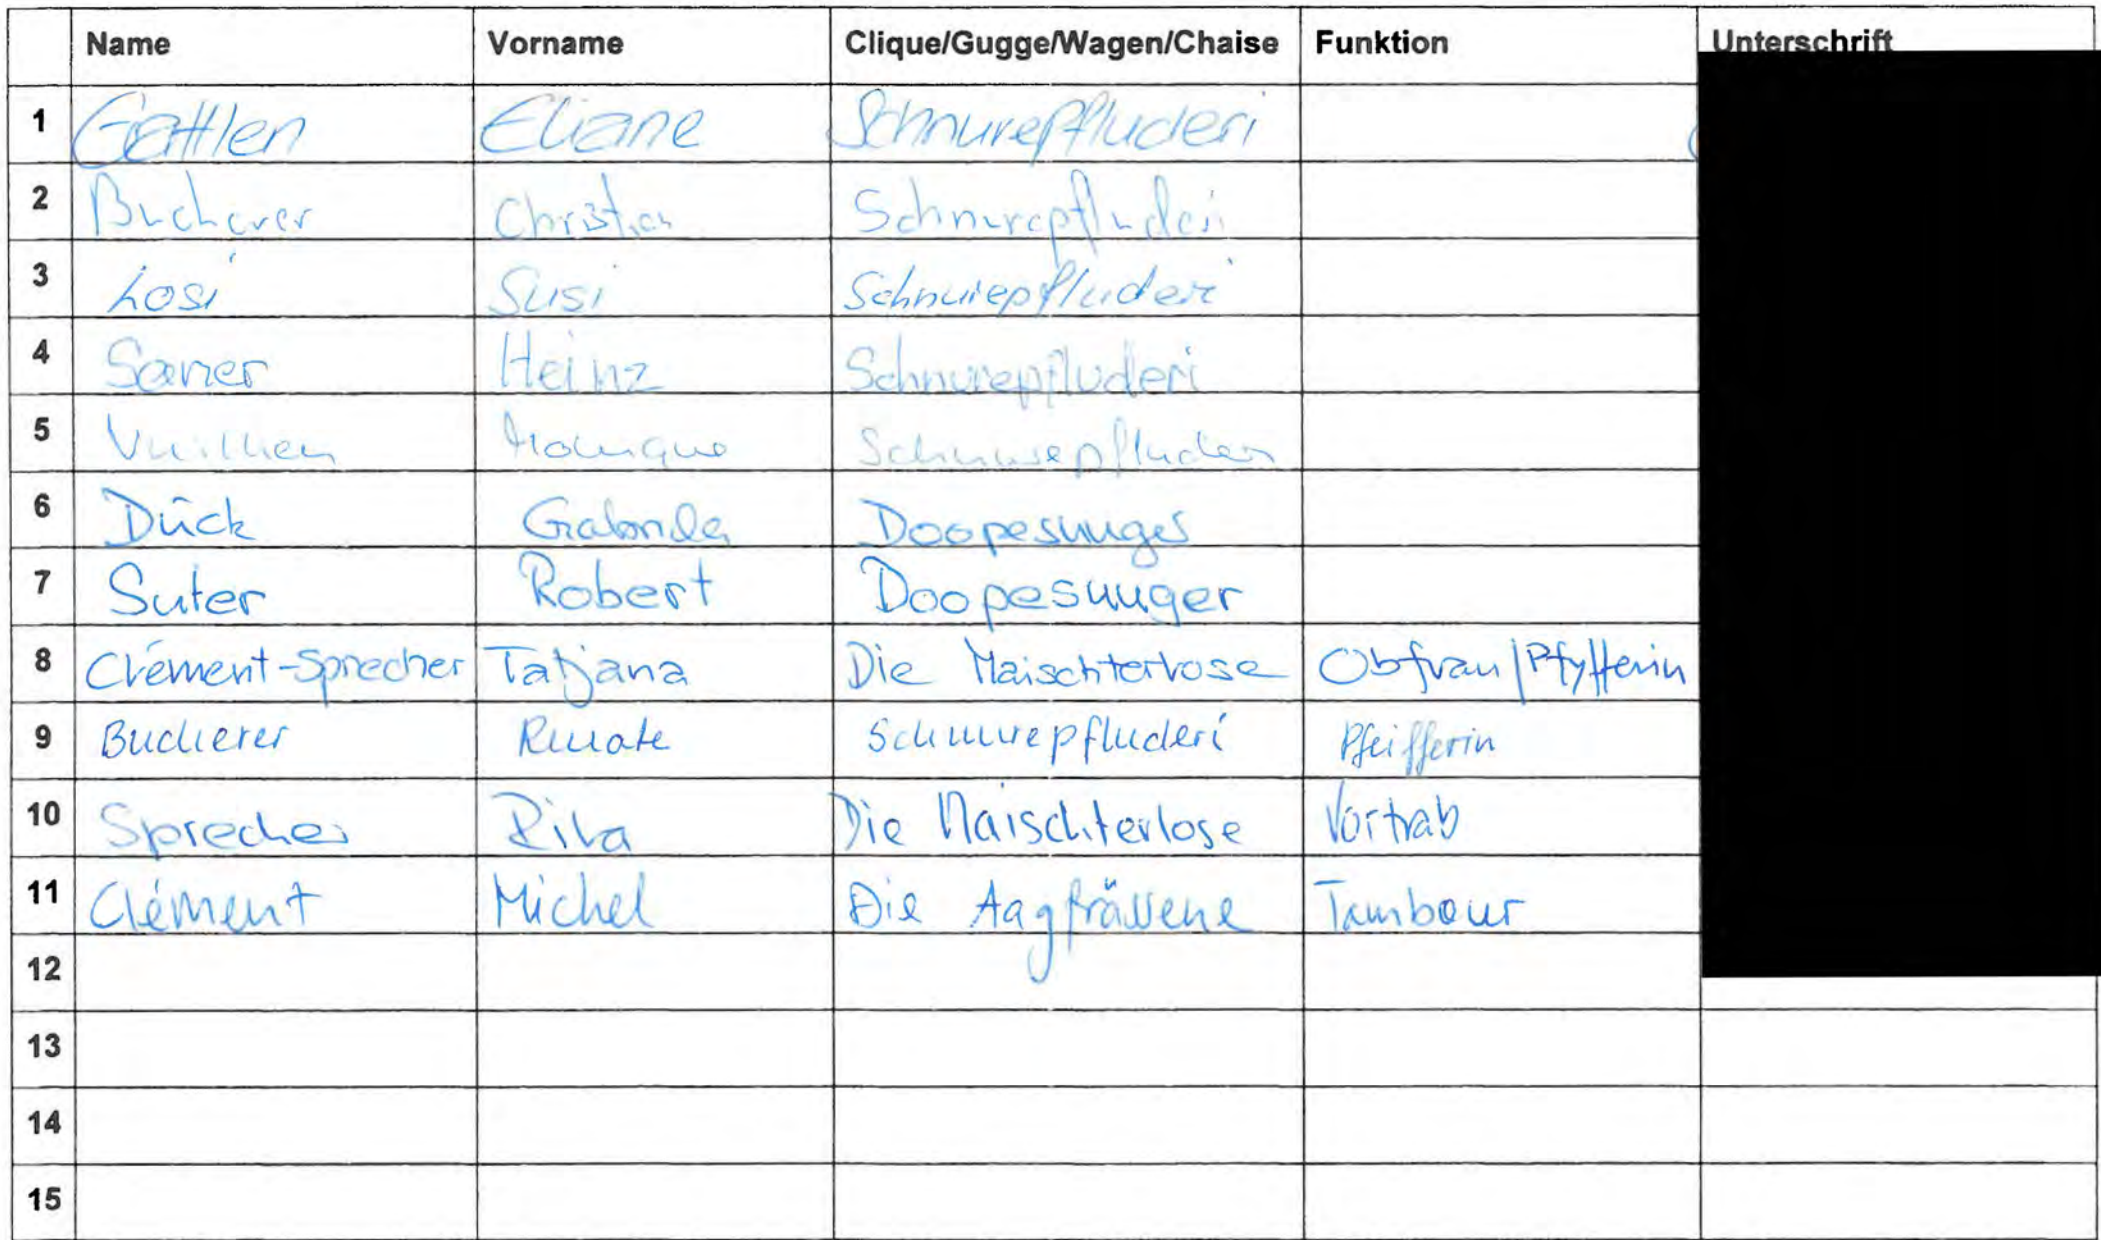 Name Vorname Clique/Gugge/Wagen/Chaise Funktion Unterschrift
1 Gattlen Eliane Schnurepfluderi
2 Bucherer Christian Schnurepfluderi
3 Losi Susi Schnurepfluderi
4 Heinz Schnurepfluderi
5 Monique Schnurepfluderi
6 Dück Gabriela Doopesuuger
7 Suter Robert Doopesuuger
8 Clément-Sprecher Tatjana Die Maischterlose Obfrau/Pfyfferin
9 Bucherer Renate Schnurepfluderi Pfeifferin
10 Sprecher Rita Die Maischterlose Vortrab
11 Clément Michel Die Aagfrässene Tambour
12
13
14
15